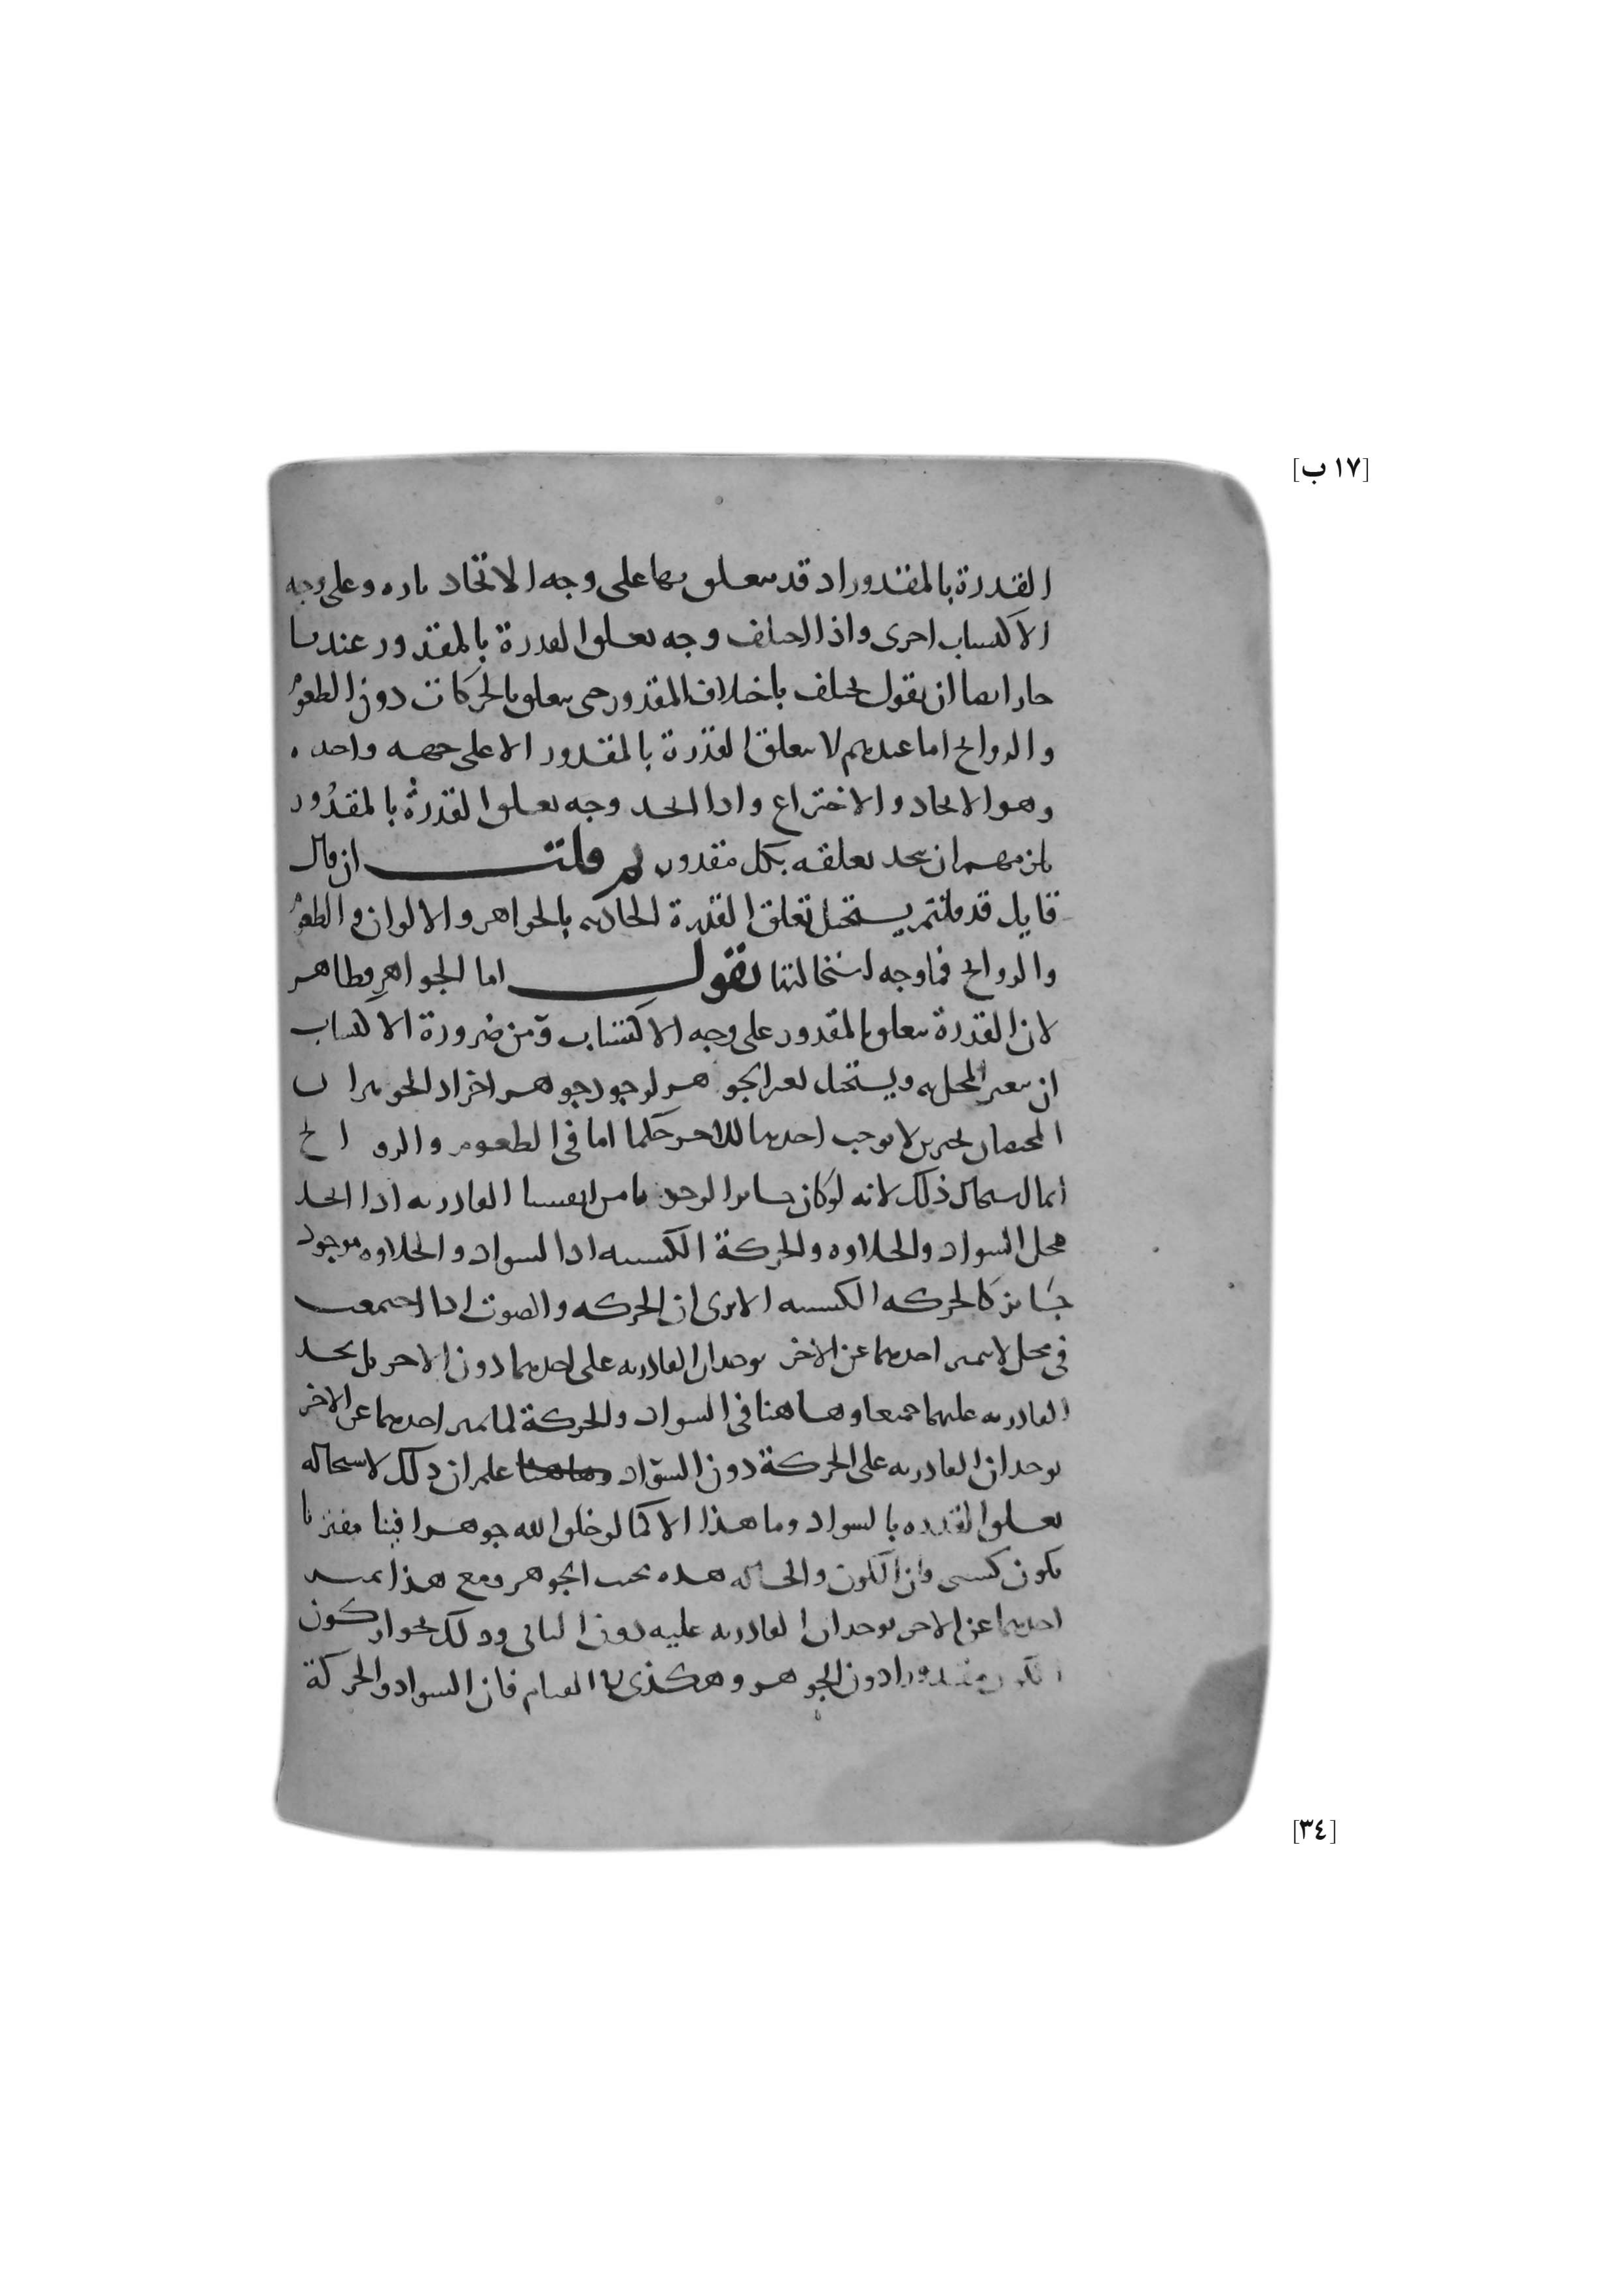 [١٧ ب]
القدرة بالمقدور اد قد يتعلق بها على وجه الاتحاد تاره وعلى وجه
الاكتساب اخرى واذا اختلف وجه تعلق القدرة بالمقدور عندنا
جاز ايضا ان نقول يختلف باختلاف المقدور حتى يتعلق بالحركات دون الطعوم
والروائح اما عندهم لا يتعلق القدرة بالمقدور الا على جهة واحده
وهو الايجاد والاختراع واذا اتحد وجه تعلق القدرة بالمقدور
يلزمهم ان يتحد تعلقه بكل مقدور قلت ان قال
قايل قد قلتم يستحيل تعلق القدرة الحادثه بالجواهر والالوان والطعوم
والروائح فما وجه استحالتها نقول اما الجواهر فظاهر
لان القدرة يتعلق بالمقدور على وجه الاكتساب ومن ضرورة الاكتساب
ان يتغير المحل به ويستحيل تغير الجوهر لوجود جوهر اخر اذ الجوهران
المختصان بحيزين لا يوجب احدهما للاخر حكما اما في الطعوم والروائح
انما استحال ذلك لانه لو كان جايزا لوجدنا من انفسنا القادريه اذا اتحد
محل السواد والحلاوه والحركة الكسبيه اذ السواد والحلاوه موجود
جايز كالحركه الكسبيه الا ترى ان الحركه والصوت اذا اجتمعت
في محل لا يتميز احدهما عن الاخر بوجدان القادريه على احدهما دون الاخر بل يجد
القادريه عليهما جميعا وهاهنا في السواد والحركة لما تميز احدهما عن الاخر
بوجدان القادريه على الحركة دون السواد علم ان ذلك لاستحاله
تعلق القدره بالسواد وما هذا الا كما لو خلق الله جوهرا فينا مقترنا
بكون كسبى فان الكون والحاله هذه بجنب الجوهر ومع هذا تميز
احدهما عن الاخر بوجدان القادريه عليه دون الثانى وذلك لجواز كون
الكون مقدورا دون الجوهر وهكذى القيام فان السواد والحركة
[٣٤]